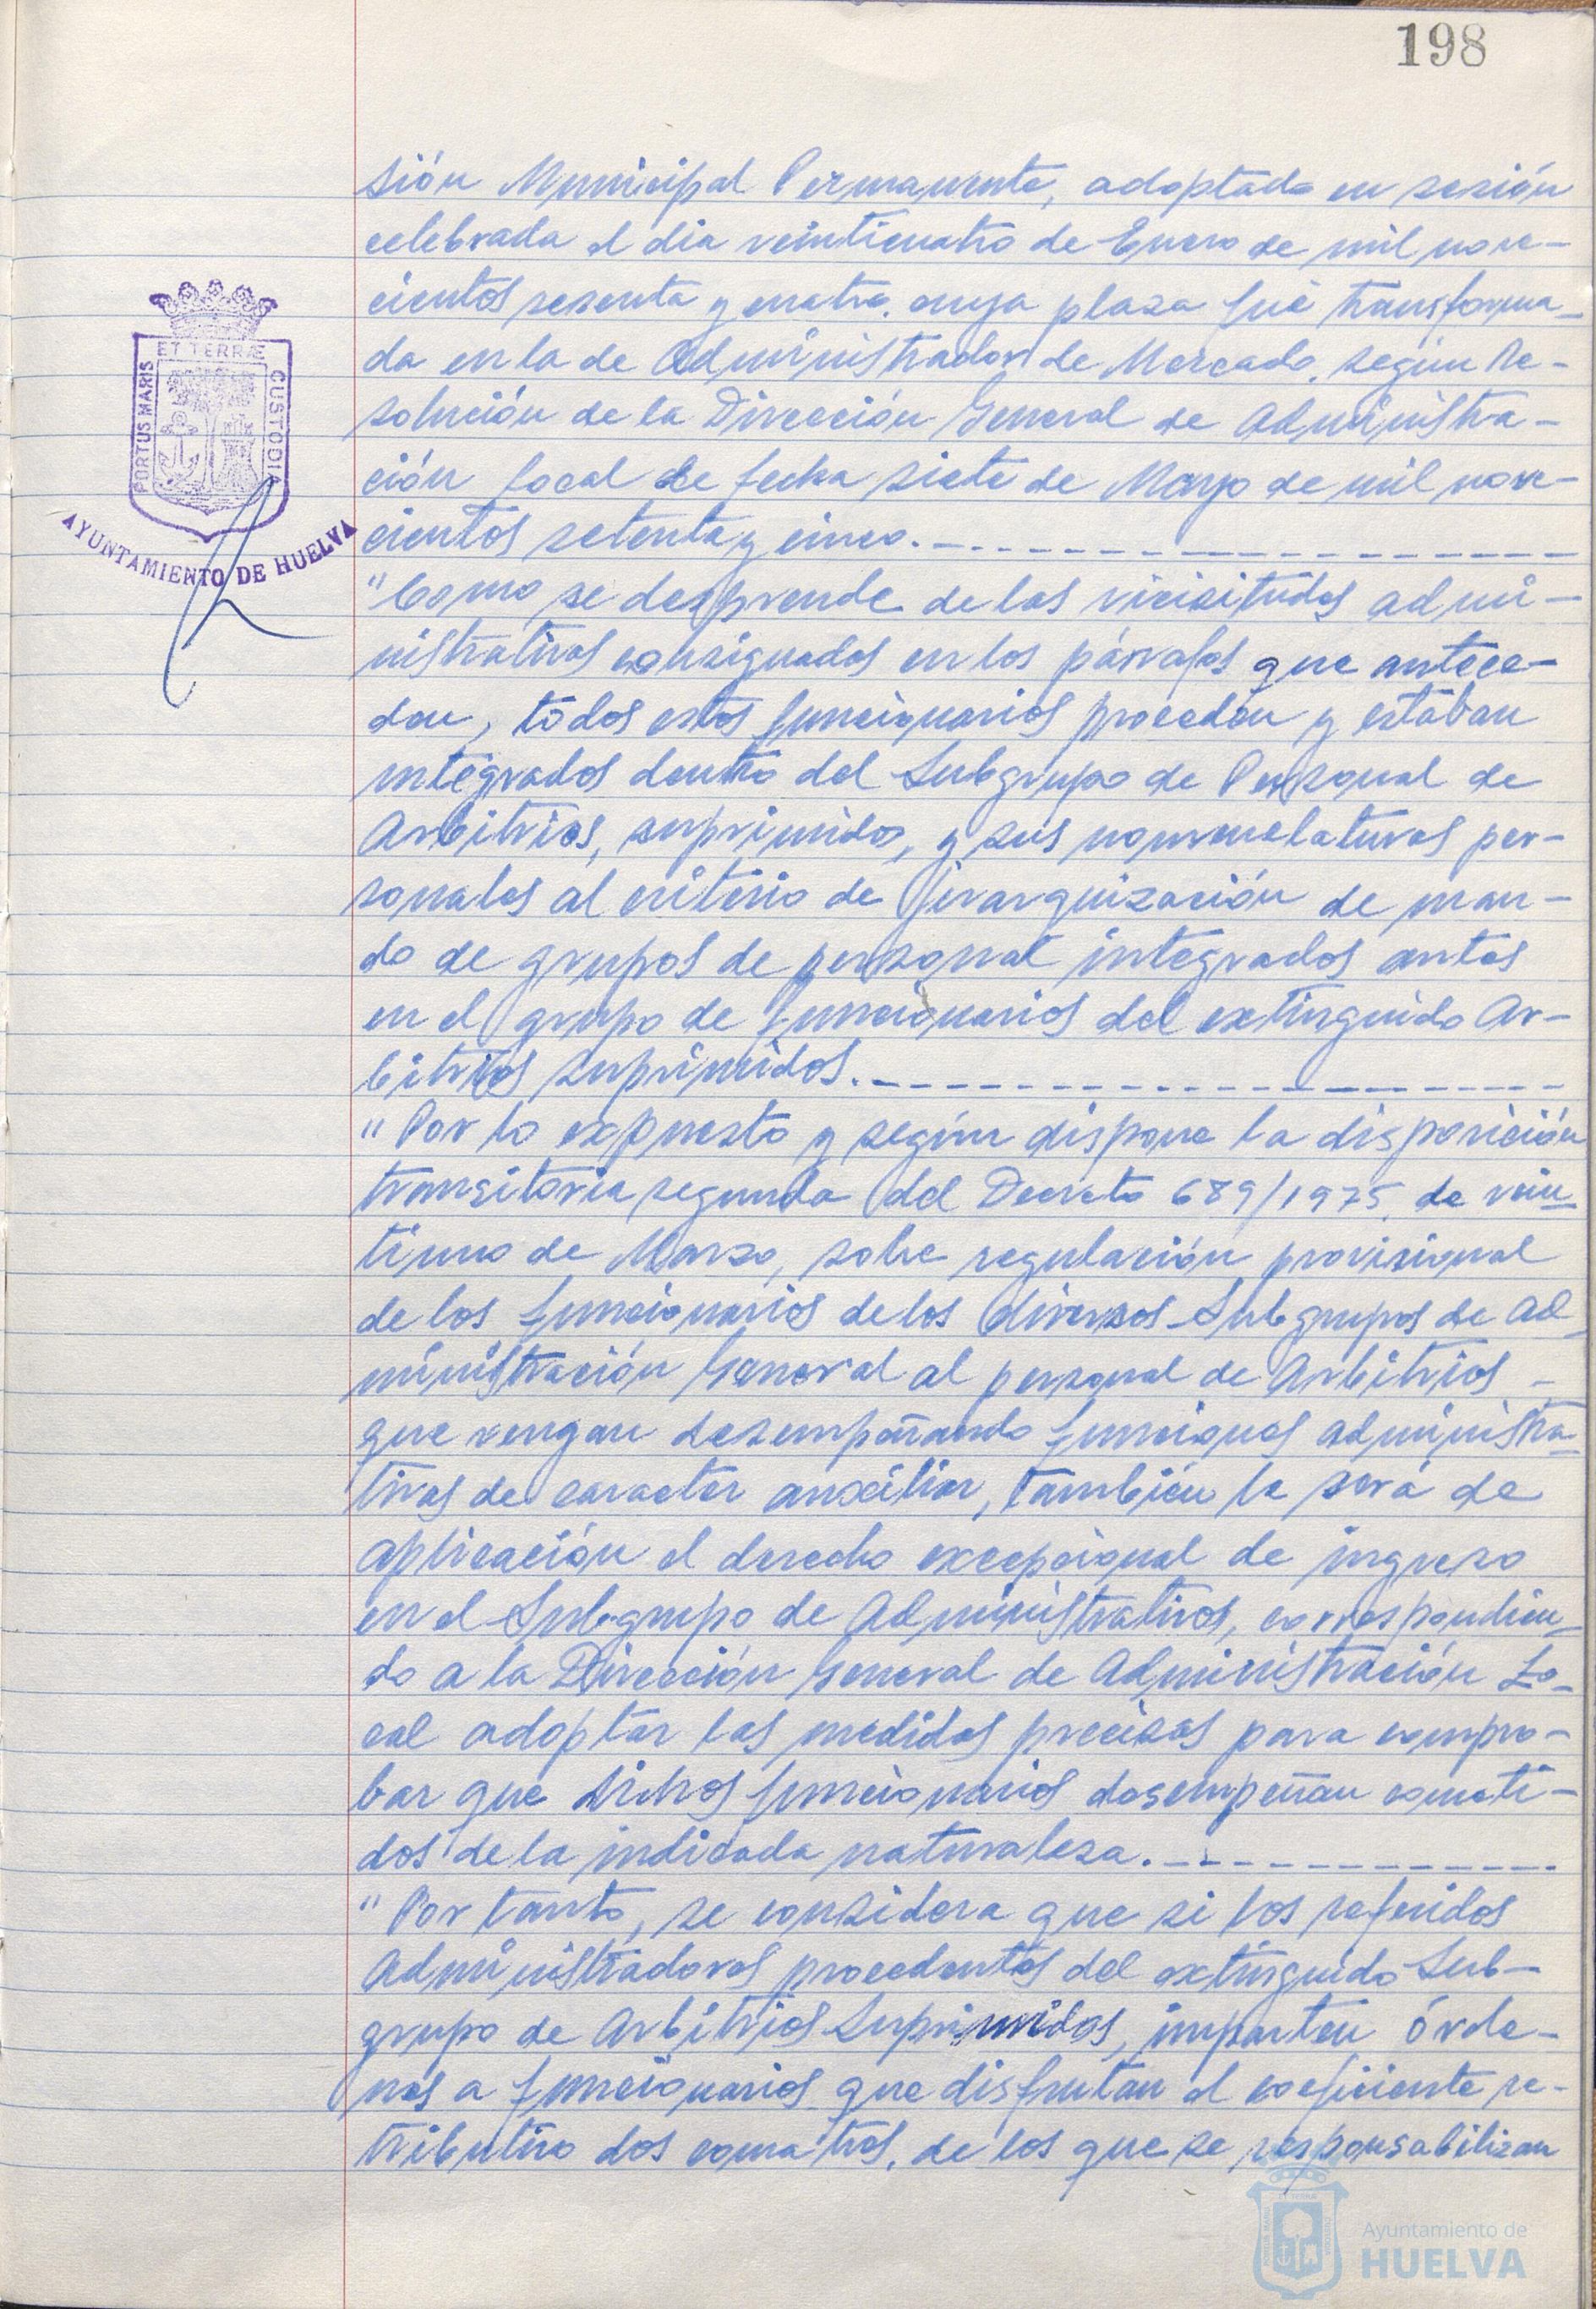 198
sión Municipal Permanente, adoptada en sesión
celebrada el dia veinticuatro de Enero de mil nove-
cientos sesenta y cuatro, cuya plaza fué transforma-
da en la de Administrador de Mercado, según Re-
solución de la Dirección General de Administra-
ción Local de fecha siete de Mayo de mil nove-
cientos setenta y cinco.
"Como se desprende de las vicisitudes admi-
nistrativas consignadas en los párrafos que antece-
den, todos estos funcionarios proceden y estaban
integrados dentro del Subgrupo de Personal de
Arbitrios, suprimido, y sus nomenclaturas per-
sonales al criterio de jerarquización de man-
do de grupos de personal integrados antes
en el grupo de funcionarios del extinguido Ar-
bitrios suprimidos.
"Por lo expuesto y según dispone la disposición
transitoria segunda del Decreto 689/1975, de vein-
tiuno de Marzo, sobre regulación provisional
de los funcionarios de los diversos Subgrupos de Ad-
ministración General al personal de Arbitrios -
que vengan desempeñando funciones administra-
tivas de caracter auxiliar, también le será de
aplicación el derecho excepcional de ingreso
en el Subgrupo de Administrativos, correspondien-
do a la Dirección General de Administración Lo-
cal adoptar las medidas precisas para compro-
bar que dichos funcionarios desempeñan cometi-
dos de la indicada naturaleza.
"Por tanto, se considera que si los referidos
Administradores procedentes del extinguido Sub-
grupo de Arbitrios Suprimidos, imparten órde-
nes a funcionarios que disfrutan el coeficiente re-
tributivo dos coma tres, de los que se responsabilizan
PORTUS MARIS
ET TERRÆ
CUSTODIA
AYUNTAMIENTO DE HUELVA
Ayuntamiento de
HUELVA